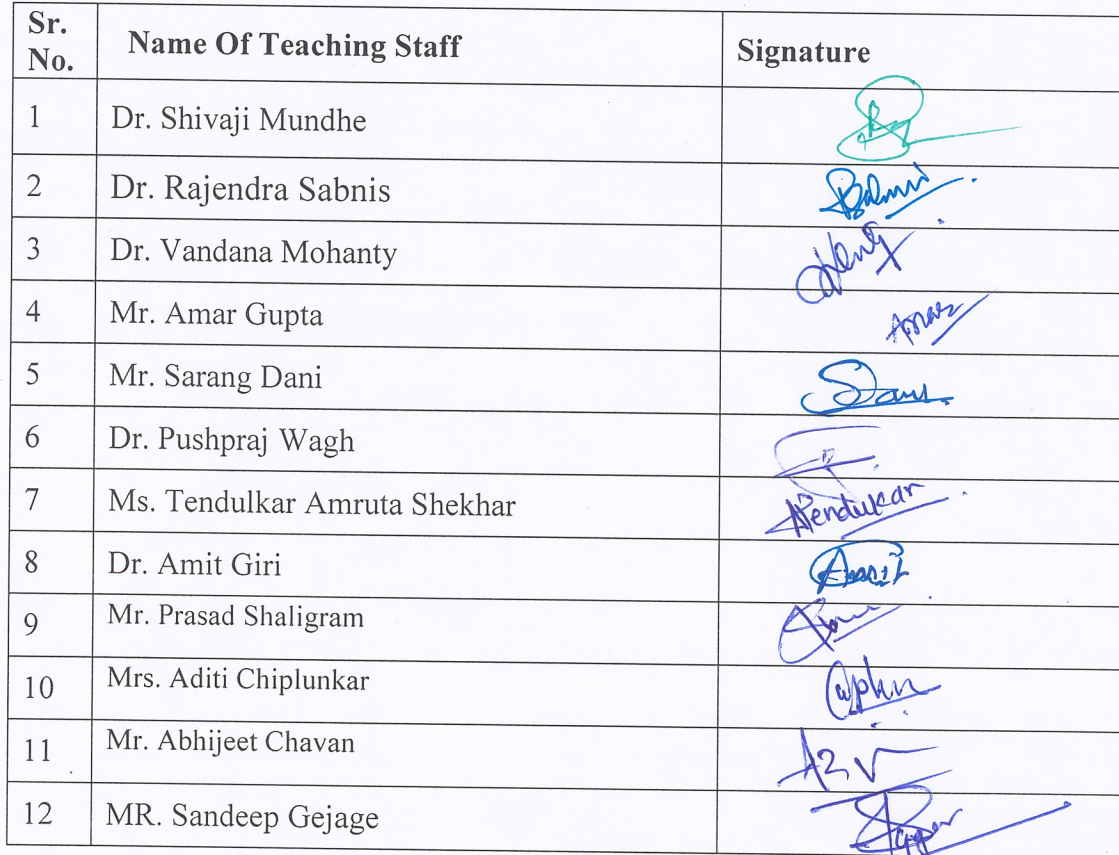 Sr. No. Name Of Teaching Staff Signature
1 Dr. Shivaji Mundhe
2 Dr. Rajendra Sabnis
3 Dr. Vandana Mohanty
4 Mr. Amar Gupta
5 Mr. Sarang Dani
6 Dr. Pushpraj Wagh
7 Ms. Tendulkar Amruta Shekhar
8 Dr. Amit Giri
9 Mr. Prasad Shaligram
10 Mrs. Aditi Chiplunkar
11 Mr. Abhijeet Chavan
12 MR. Sandeep Gejage